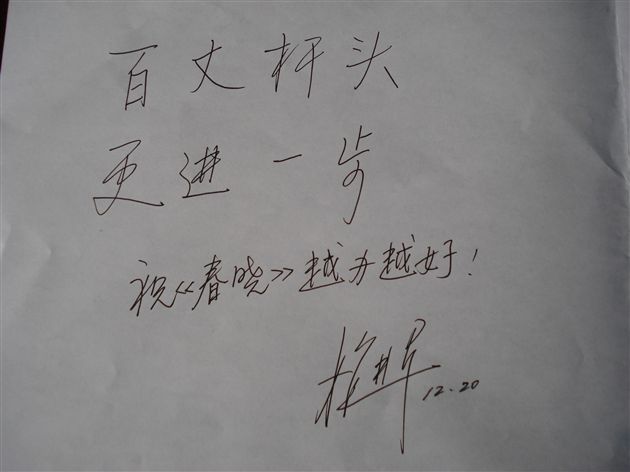 百丈杆头
更进一步
祝《春晓》越办越好！
12.20